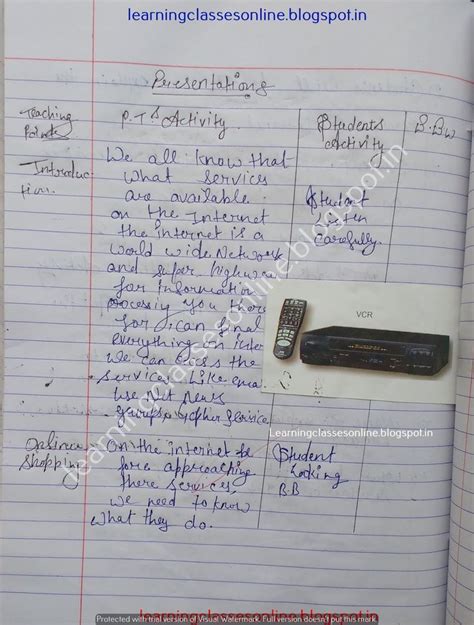 learningclassesonline.blogspot.in
Presentations
Teaching Point
P.T's Activity
Students Activity
B.B.W
Introduc
tion
We all know that
what services
are available
on the Internet
the internet is a
world wide Network
and super highway
for Information
you
for can find
everything on
we can the
services Like
use net news
gopher service
Student
Listen
carefully.
VCR
Learningclassesonline.blogspot.in
Online
shopping
On the internet be
fore approaching
there services,
we need to know
what they do.
Student
Looking
B.B
learningclassesonline.blogspot.in
learningclassesonline.blogspot.in
Protected with trial version of Visual Watermark. Full version doesn't put this mark.